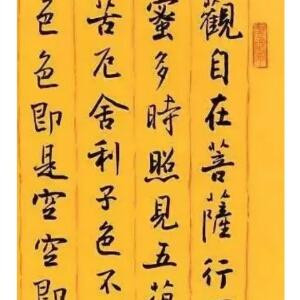 觀自在菩薩行
蜜多時照見五
苦厄舍利子色不
色色即是空空即